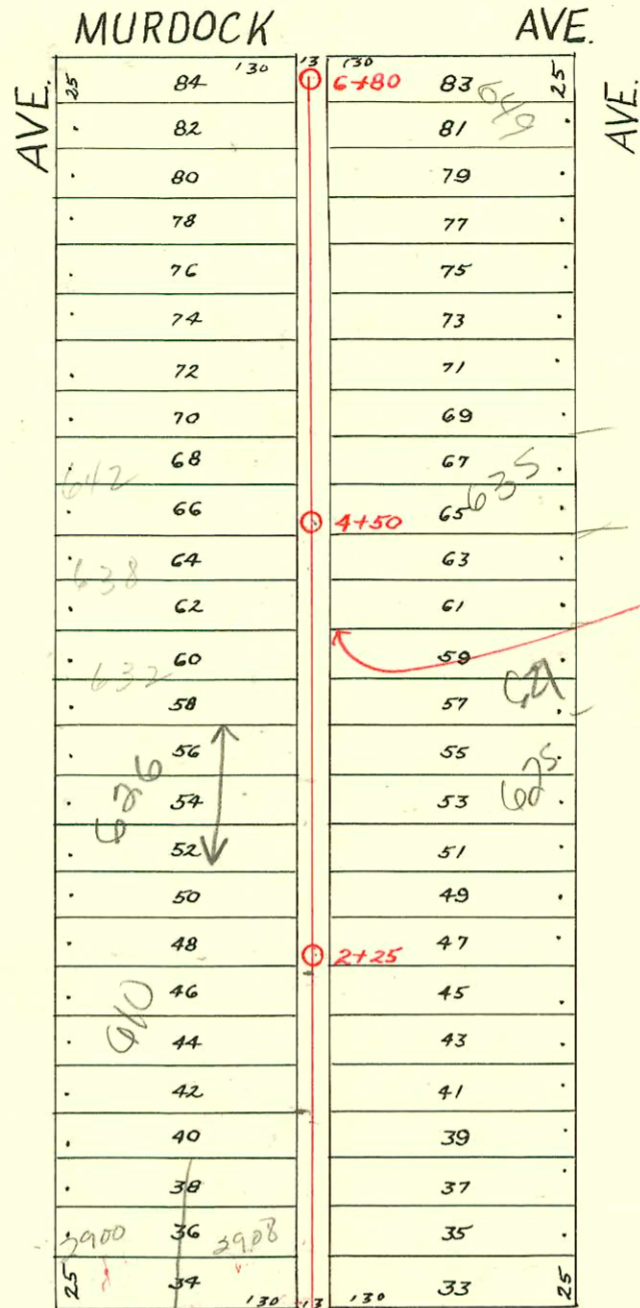 MURDOCK AVE.
AVE.
AVE.
25 84 130 13 130 6+80 83 649 25
82 81
80 79
78 77
76 75
74 73
72 71
70 69
68 67
642 635
66 4+50 65
64 63
638
62 61
60 59
632
58 57
56 55
626 625
54 53
52 51
50 49
48 2+25 47
46 45
610
44 43
42 41
40 39
38 37
3900 36 3908 35
25 34 130 13 130 33 25